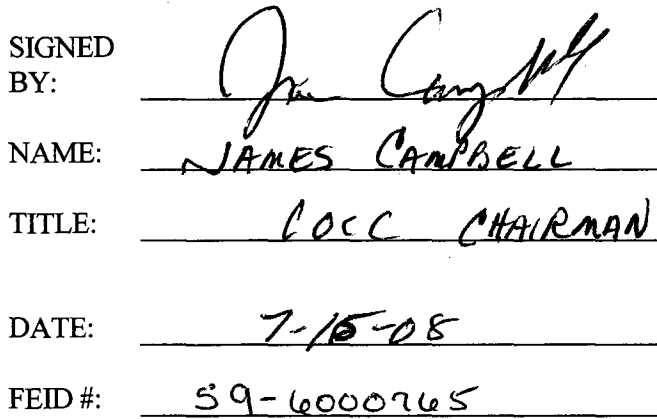 SIGNED
BY: Jim Campbell
NAME: JAMES CAMPBELL
TITLE: COCC CHAIRMAN
DATE: 7-15-08
FEID #: 59-6000765